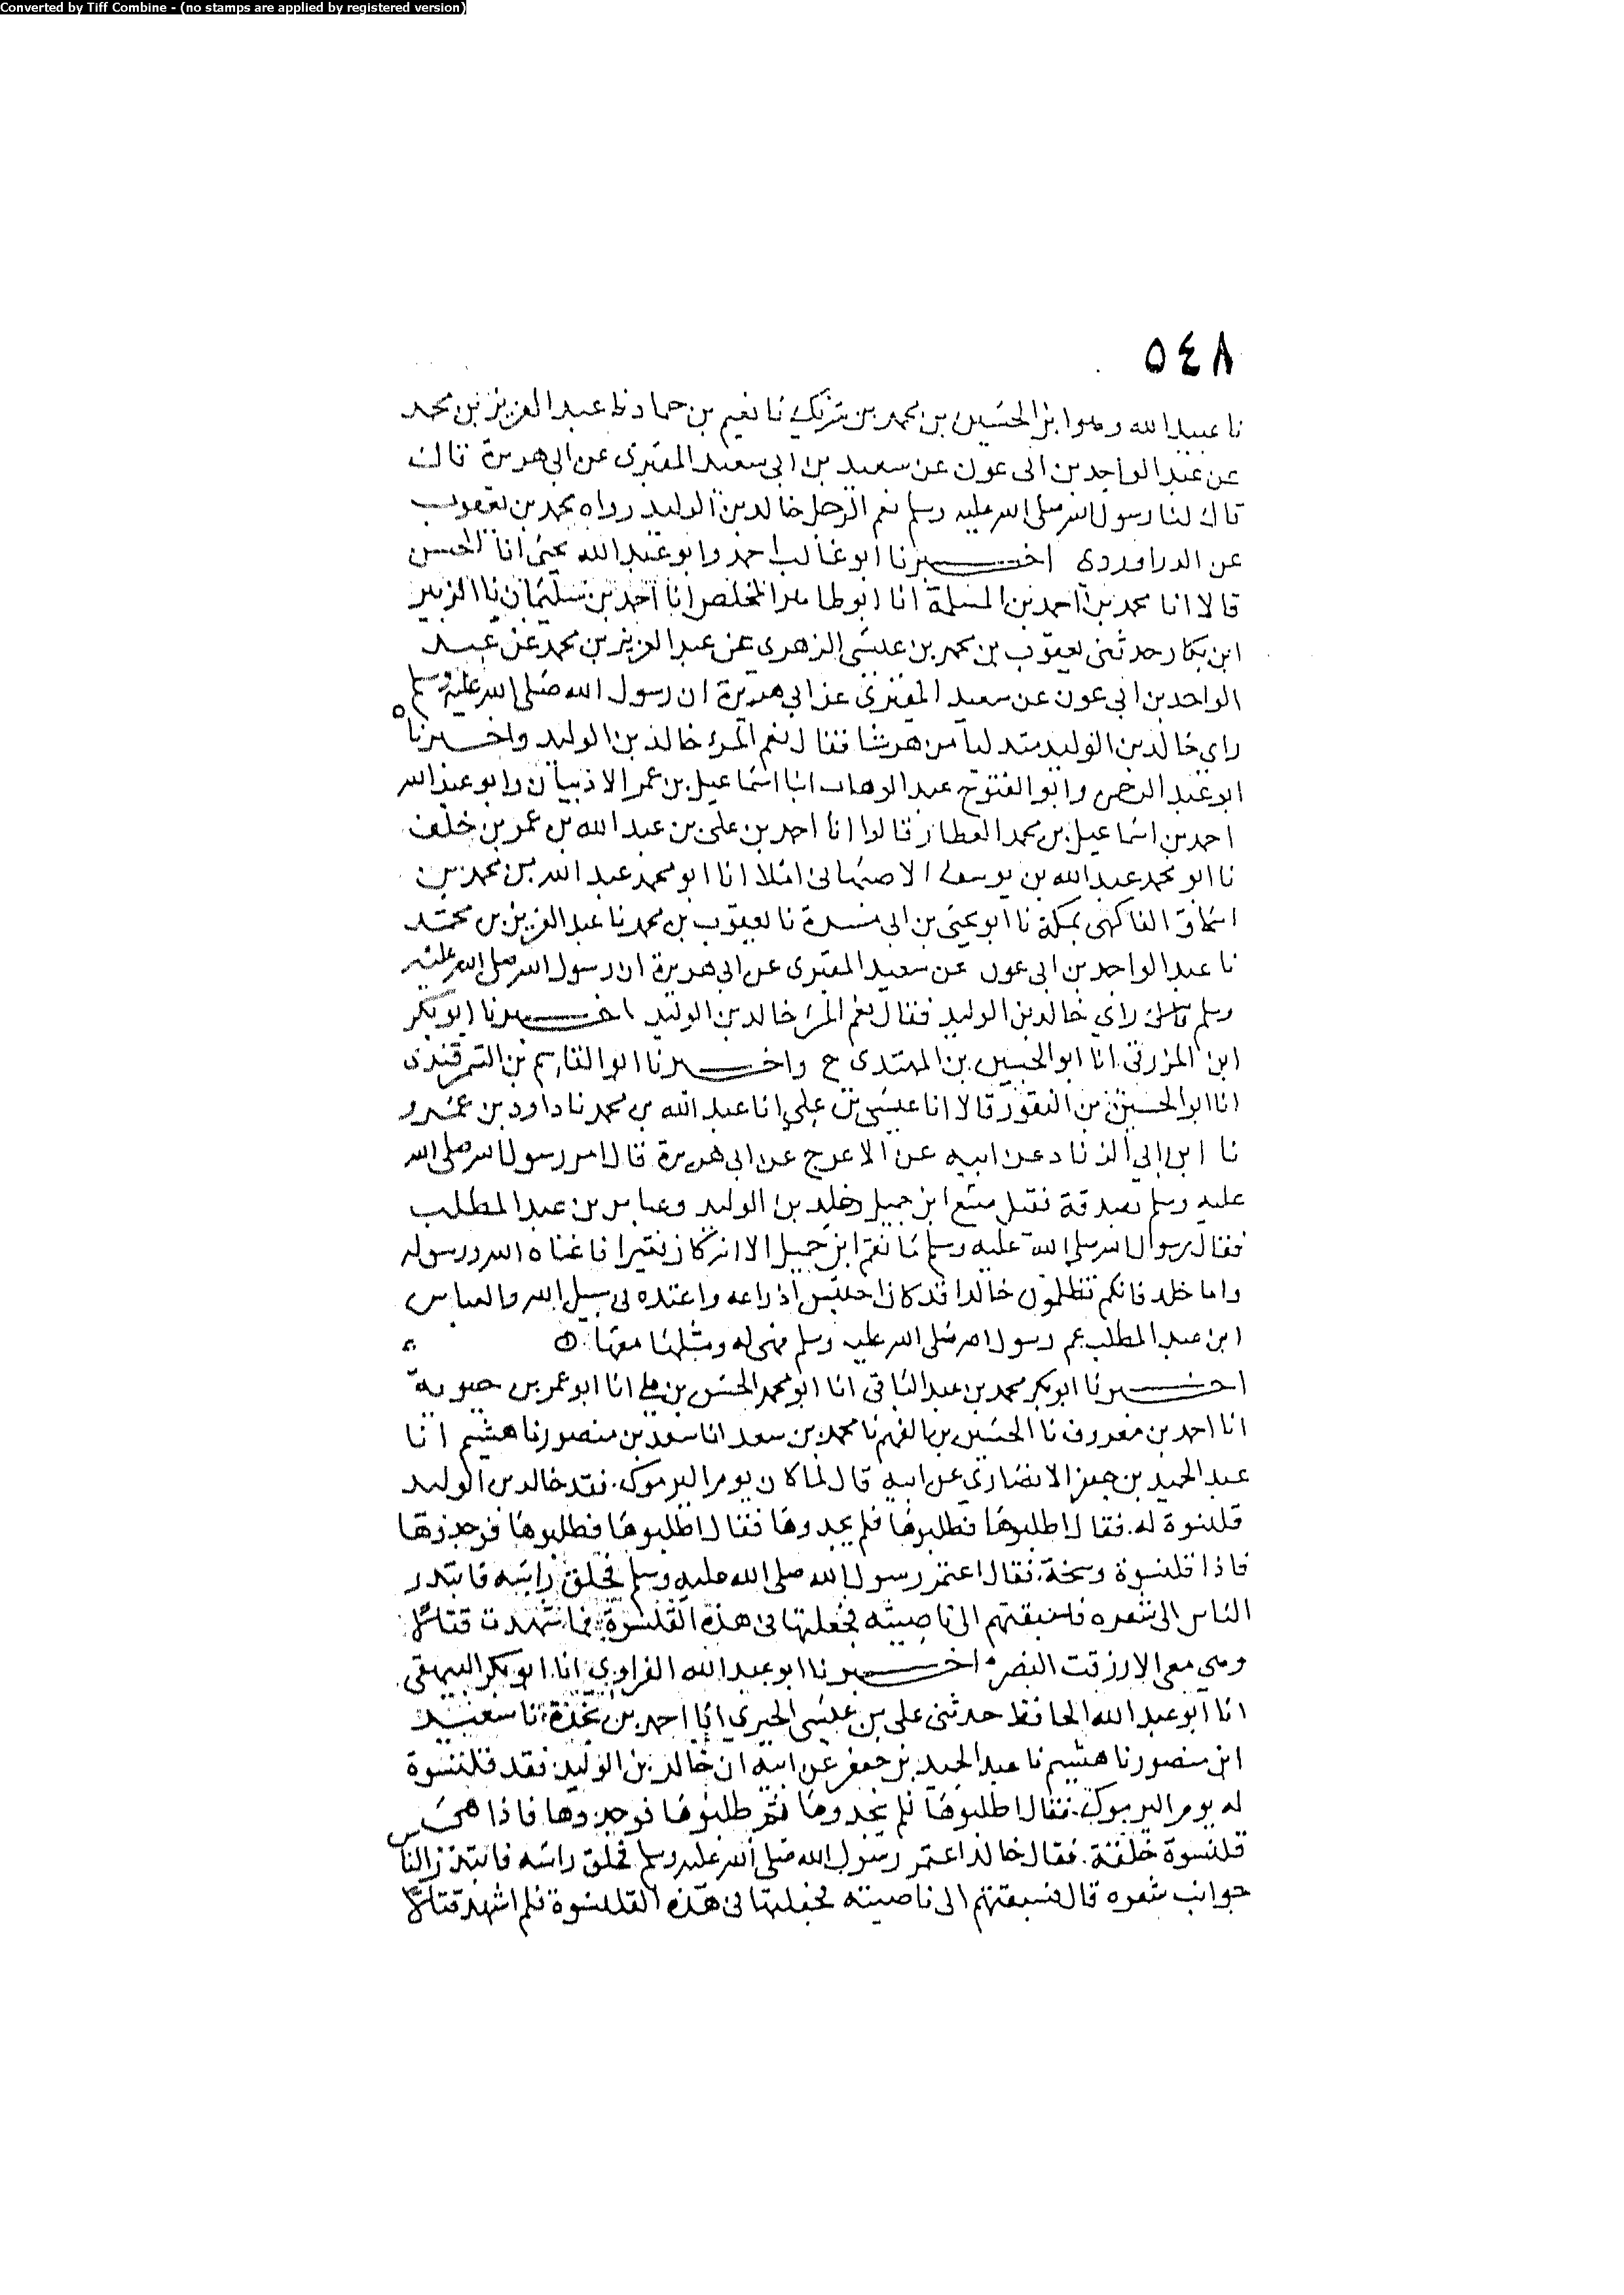 Converted by Tiff Combine - (no stamps are applied by registered version)
٥٤٨
نا عبيد الله وهو ابن الحسين بن محمد بن شريك نا نعيم بن حماد نا عبد العزيز بن محمد
عن عبد الواحد بن ابي عون عن سعيد بن ابي سعيد المقبري عن ابي هريرة قال
قال لنا رسول الله صلى الله عليه وسلم نعم الرجل خالد بن الوليد رواه محمد بن يعقوب
عن الدراوردي اخبرنا ابو غالب احمد وابو عبد الله يحيى انا الحسن
قالا انا محمد بن احمد بن المسلمة انا ابو طاهر المخلص انا احمد بن سليمان نا الزبير
ابن بكار حدثني يعقوب بن محمد بن عيسى الزهري عن عبد العزيز بن محمد عن عبد
الواحد بن ابي عون عن سعيد المقبري عن ابي هريرة ان رسول الله صلى الله عليه وسلم
راي خالد بن الوليد متدليا من هرشا فقال نعم المرء خالد بن الوليد واخبرنا
ابو عبد الرحمن وابو الفتوح عبد الوهاب انبا اسماعيل بن عمر وابو عبد الله
احمد بن اسماعيل بن محمد العطار قالوا انا احمد بن علي بن عبد الله بن عمر بن خلف
نا ابو محمد عبد الله بن يوسف الاصبهاني املا انا ابو محمد عبد الله بن محمد بن
اسحاق الفاكهي بمكة نا ابو يحيى بن ابي مسرة نا يعقوب بن محمد نا عبد العزيز بن محمد
نا عبد الواحد بن ابي عون عن سعيد المقبري عن ابي هريرة ان رسول الله صلى الله عليه
وسلم راي خالد بن الوليد فقال نعم المرء خالد بن الوليد اخبرنا ابو بكر
ابن المزرفي انا ابو الحسين بن المهتدي ح واخبرنا ابو القاسم بن السمرقندي
انا ابو الحسين بن النقور قالا انا عيسى بن علي انا عبد الله بن محمد نا داود بن عمرو
نا ابن ابي الزناد عن ابيه عن الاعرج عن ابي هريرة قال امر رسول الله صلى الله
عليه وسلم بصدقة فقيل منع ابن جميل وخلد بن الوليد وعباس بن عبد المطلب
فقال رسول الله صلى الله عليه وسلم ما نقم ابن جميل الا انه كان فقيرا فاغناه الله ورسوله
واما خلد فانكم تظلمون خالدا قد كان احتبس اذراعه واعتده في سبيل الله والعباس
ابن عبد المطلب عم رسول الله صلى الله عليه وسلم فهي له ومثلها معها
اخبرنا ابو بكر محمد بن عبد الباقي انا ابو محمد الحسن بن علي انا ابو عمر بن حيوية
انا احمد بن معروف نا الحسين بن الفهم نا محمد بن سعد انا سعد بن منصور نا هشيم انا
عبد الحميد بن جعفر الانصاري عن ابيه قال لما كان يوم اليرموك فقد خالد بن الوليد
قلنسوة له فقال اطلبوها فطلبوها فلم يجدوها فقال اطلبوها فطلبوها فوجدوها
فاذا قلنسوة وسخة فقال اعتمر رسول الله صلى الله عليه وسلم فحلق راسه فابتدر
الناس الى شعره فسبقتهم الى ناصيته فجعلتها في هذه القلنسوة فما شهدت قتالا
وهي معي الا رزقت النصر اخبرنا ابو عبد الله الفراوي انا ابو بكر البيهقي
انا ابو عبد الله الحافظ حدثني علي بن عيسى الحيري انا احمد بن نجدة نا سعيد
ابن منصور نا هشيم نا عبد الحميد بن جعفر عن ابيه ان خالد بن الوليد فقد قلنسوة
له يوم اليرموك فقال اطلبوها فلم يجدوها ثم طلبوها فوجدوها فاذا هي
قلنسوة خلقة فقال خالد اعتمر رسول الله صلى الله عليه وسلم فحلق راسه فابتدر الناس
جوانب شعره قال فسبقتهم الى ناصيته فجعلتها في هذه القلنسوة فلم اشهد قتالا